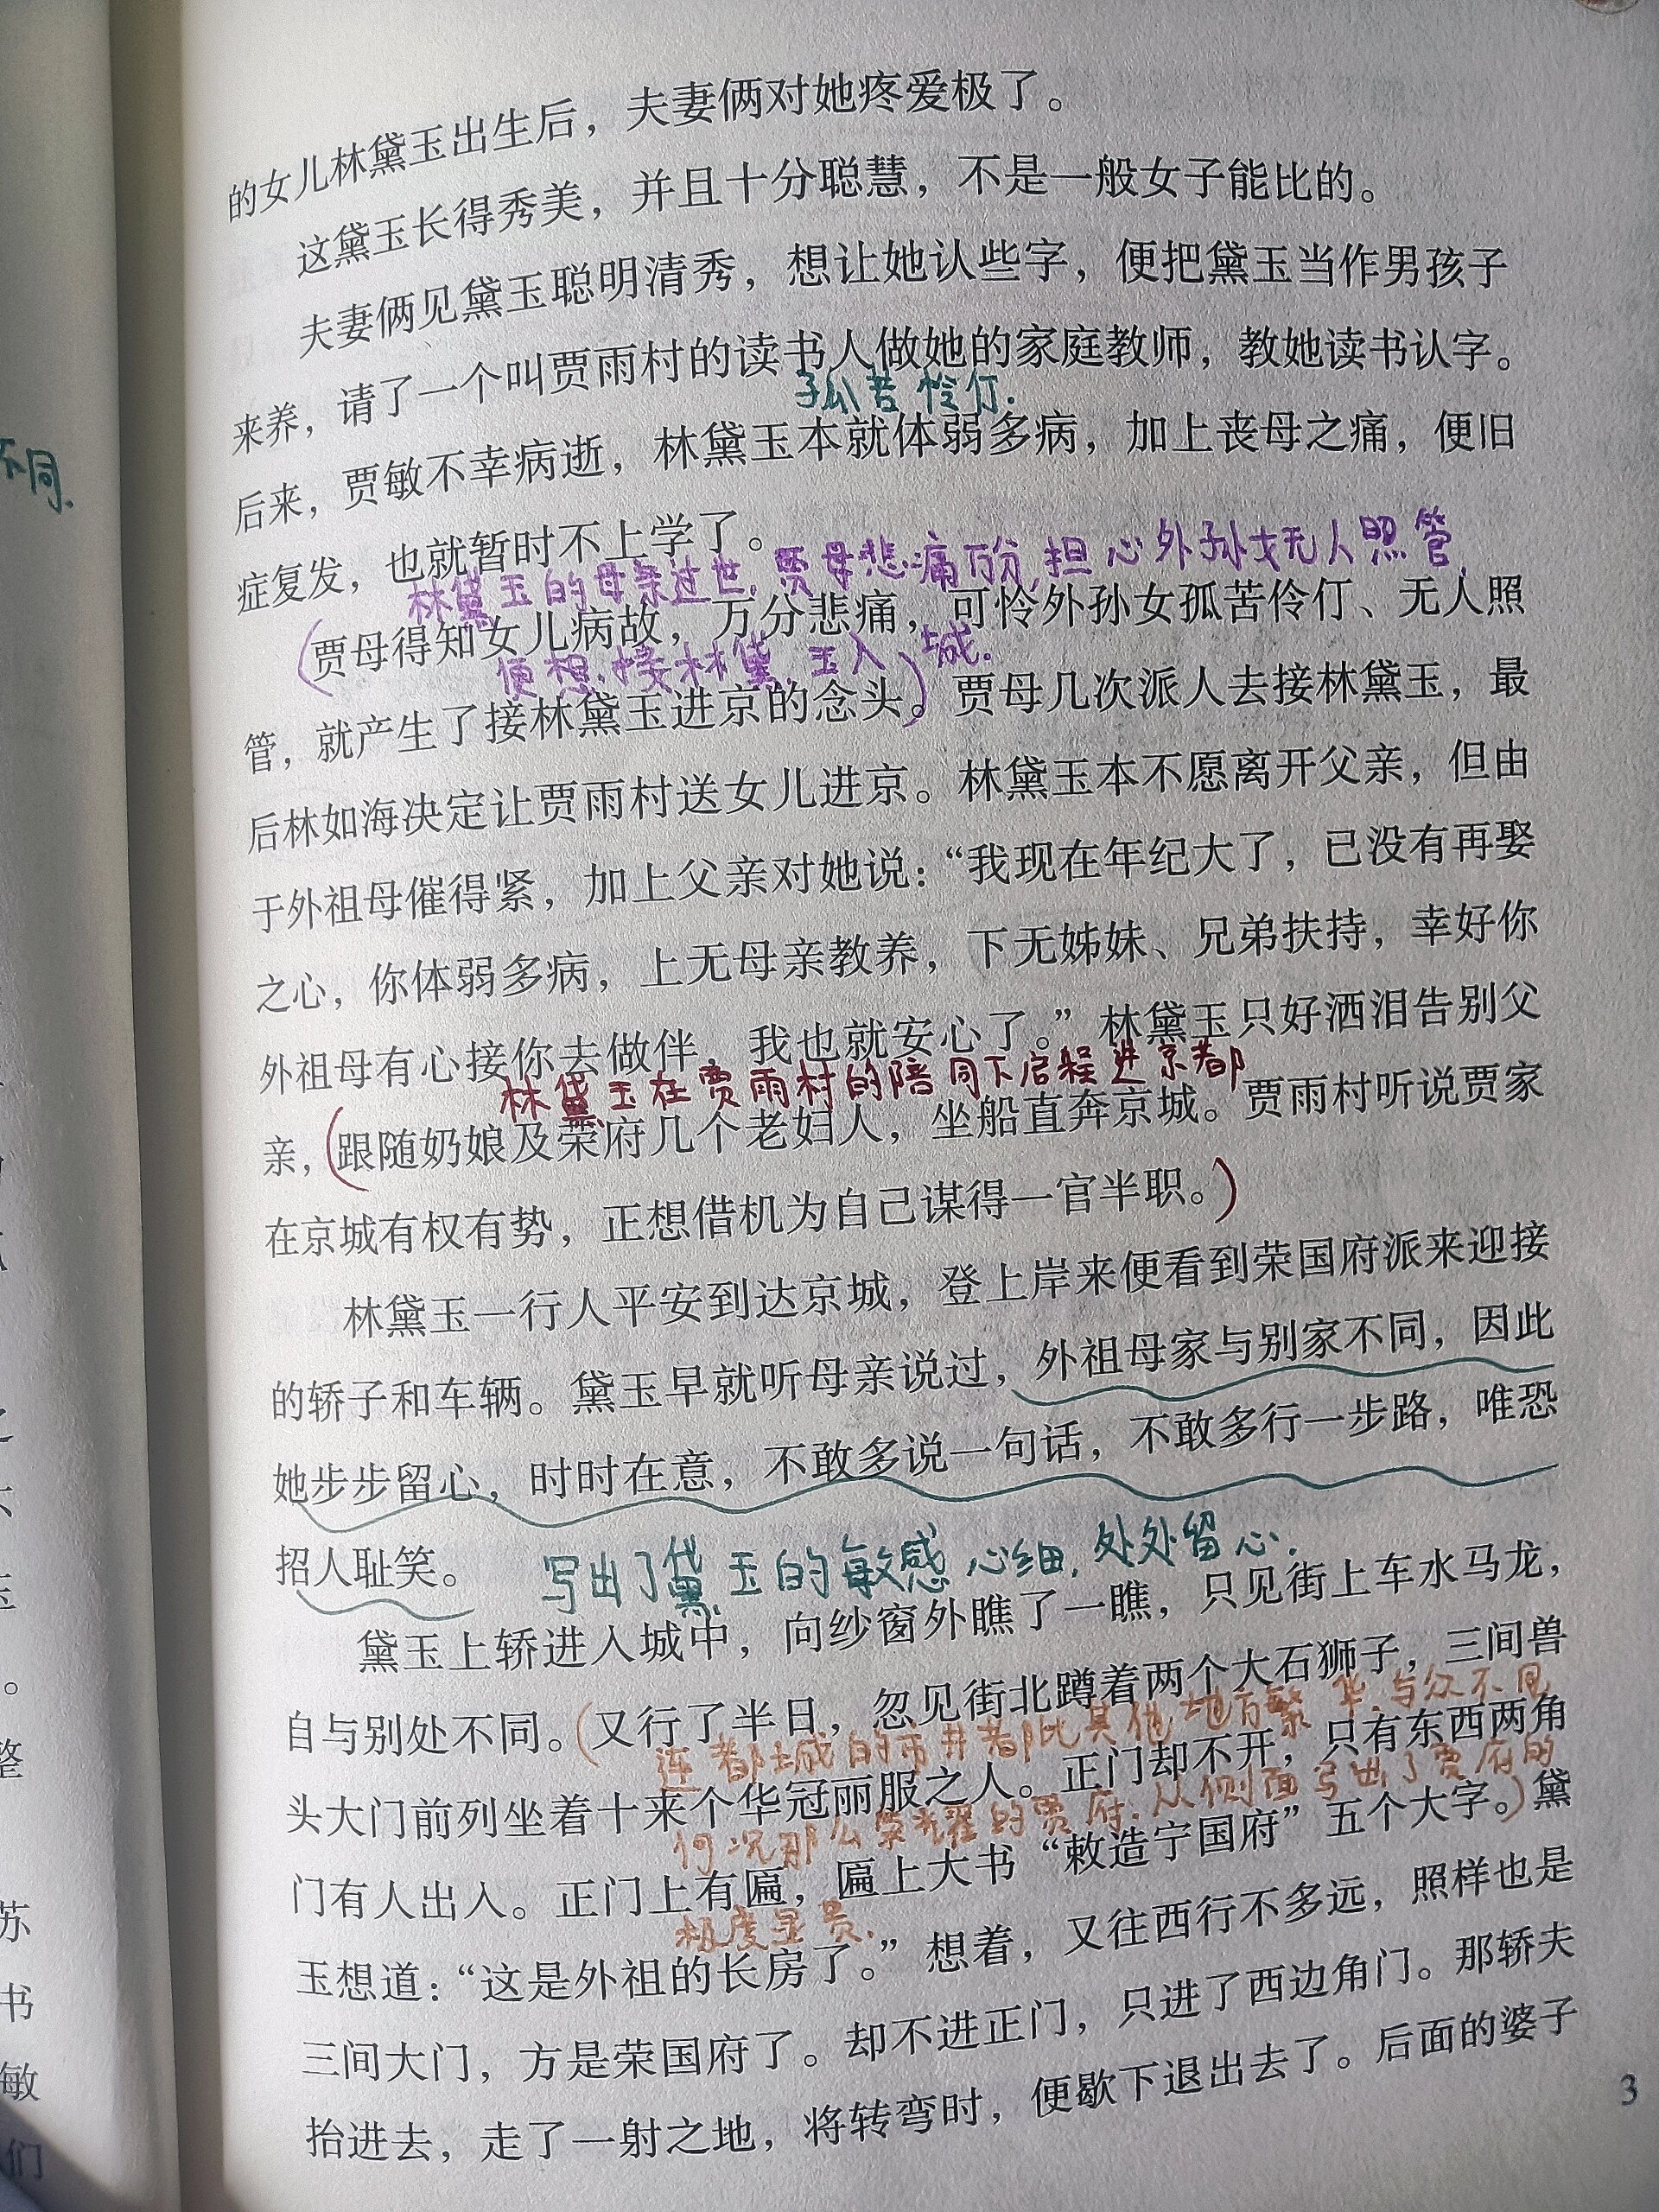 的女儿林黛玉出生后，夫妻俩对她疼爱极了。
这黛玉长得秀美，并且十分聪慧，不是一般女子能比的。
夫妻俩见黛玉聪明清秀，想让她认些字，便把黛玉当作男孩子
来养，请了一个叫贾雨村的读书人做她的家庭教师，教她读书认字。
孤苦怜仃.
后来，贾敏不幸病逝，林黛玉本就体弱多病，加上丧母之痛，便旧
不同.
症复发，也就暂时不上学了。
林黛玉的母亲过世，贾母悲痛万分，担心外孙女无人照管，
（贾母得知女儿病故，万分悲痛，可怜外孙女孤苦伶仃、无人照
便想接林黛玉入城.
管，就产生了接林黛玉进京的念头。）贾母几次派人去接林黛玉，最
后林如海决定让贾雨村送女儿进京。林黛玉本不愿离开父亲，但由
于外祖母催得紧，加上父亲对她说：“我现在年纪大了，已没有再娶
之心，你体弱多病，上无母亲教养，下无姊妹、兄弟扶持，幸好你
外祖母有心接你去做伴，我也就安心了。”林黛玉只好洒泪告别父
林黛玉在贾雨村的陪同下启程进京都
亲，（跟随奶娘及荣府几个老妇人，坐船直奔京城。贾雨村听说贾家
在京城有权有势，正想借机为自己谋得一官半职。）
林黛玉一行人平安到达京城，登上岸来便看到荣国府派来迎接
的轿子和车辆。黛玉早就听母亲说过，外祖母家与别家不同，因此
她步步留心，时时在意，不敢多说一句话，不敢多行一步路，唯恐
招人耻笑。
写出了黛玉的敏感心细，处处留心.
黛玉上轿进入城中，向纱窗外瞧了一瞧，只见街上车水马龙，
自与别处不同。（又行了半日，忽见街北蹲着两个大石狮子，三间兽
连都城的市井都比其他地方繁华，与众不同
头大门前列坐着十来个华冠丽服之人。正门却不开，只有东西两角
何况那么荣耀的贾府.从侧面写出了贾府的
门有人出入。正门上有匾，匾上大书“敕造宁国府”五个大字。）黛
极度显贵.
玉想道：“这是外祖的长房了。”想着，又往西行不多远，照样也是
三间大门，方是荣国府了。却不进正门，只进了西边角门。那轿夫
抬进去，走了一射之地，将转弯时，便歇下退出去了。后面的婆子
3
整
苏
书
敏
们